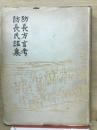 防長方言考
防長民謡集